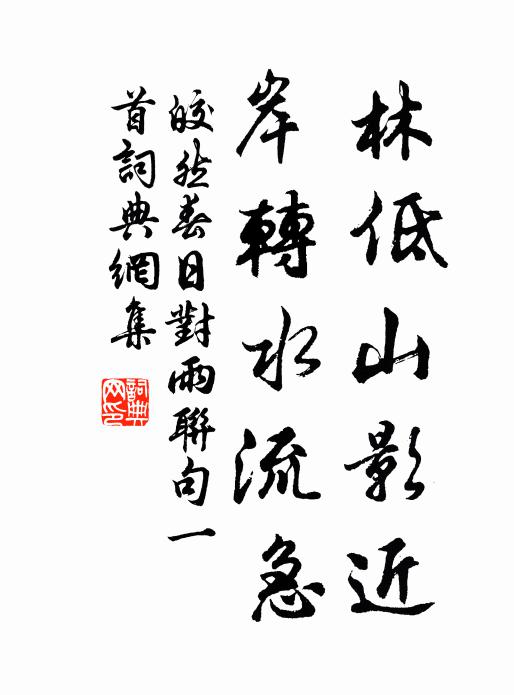 林低山影近
岸轉水流急
皎然春日對雨聯句一
首詞典網集
詞典
网印